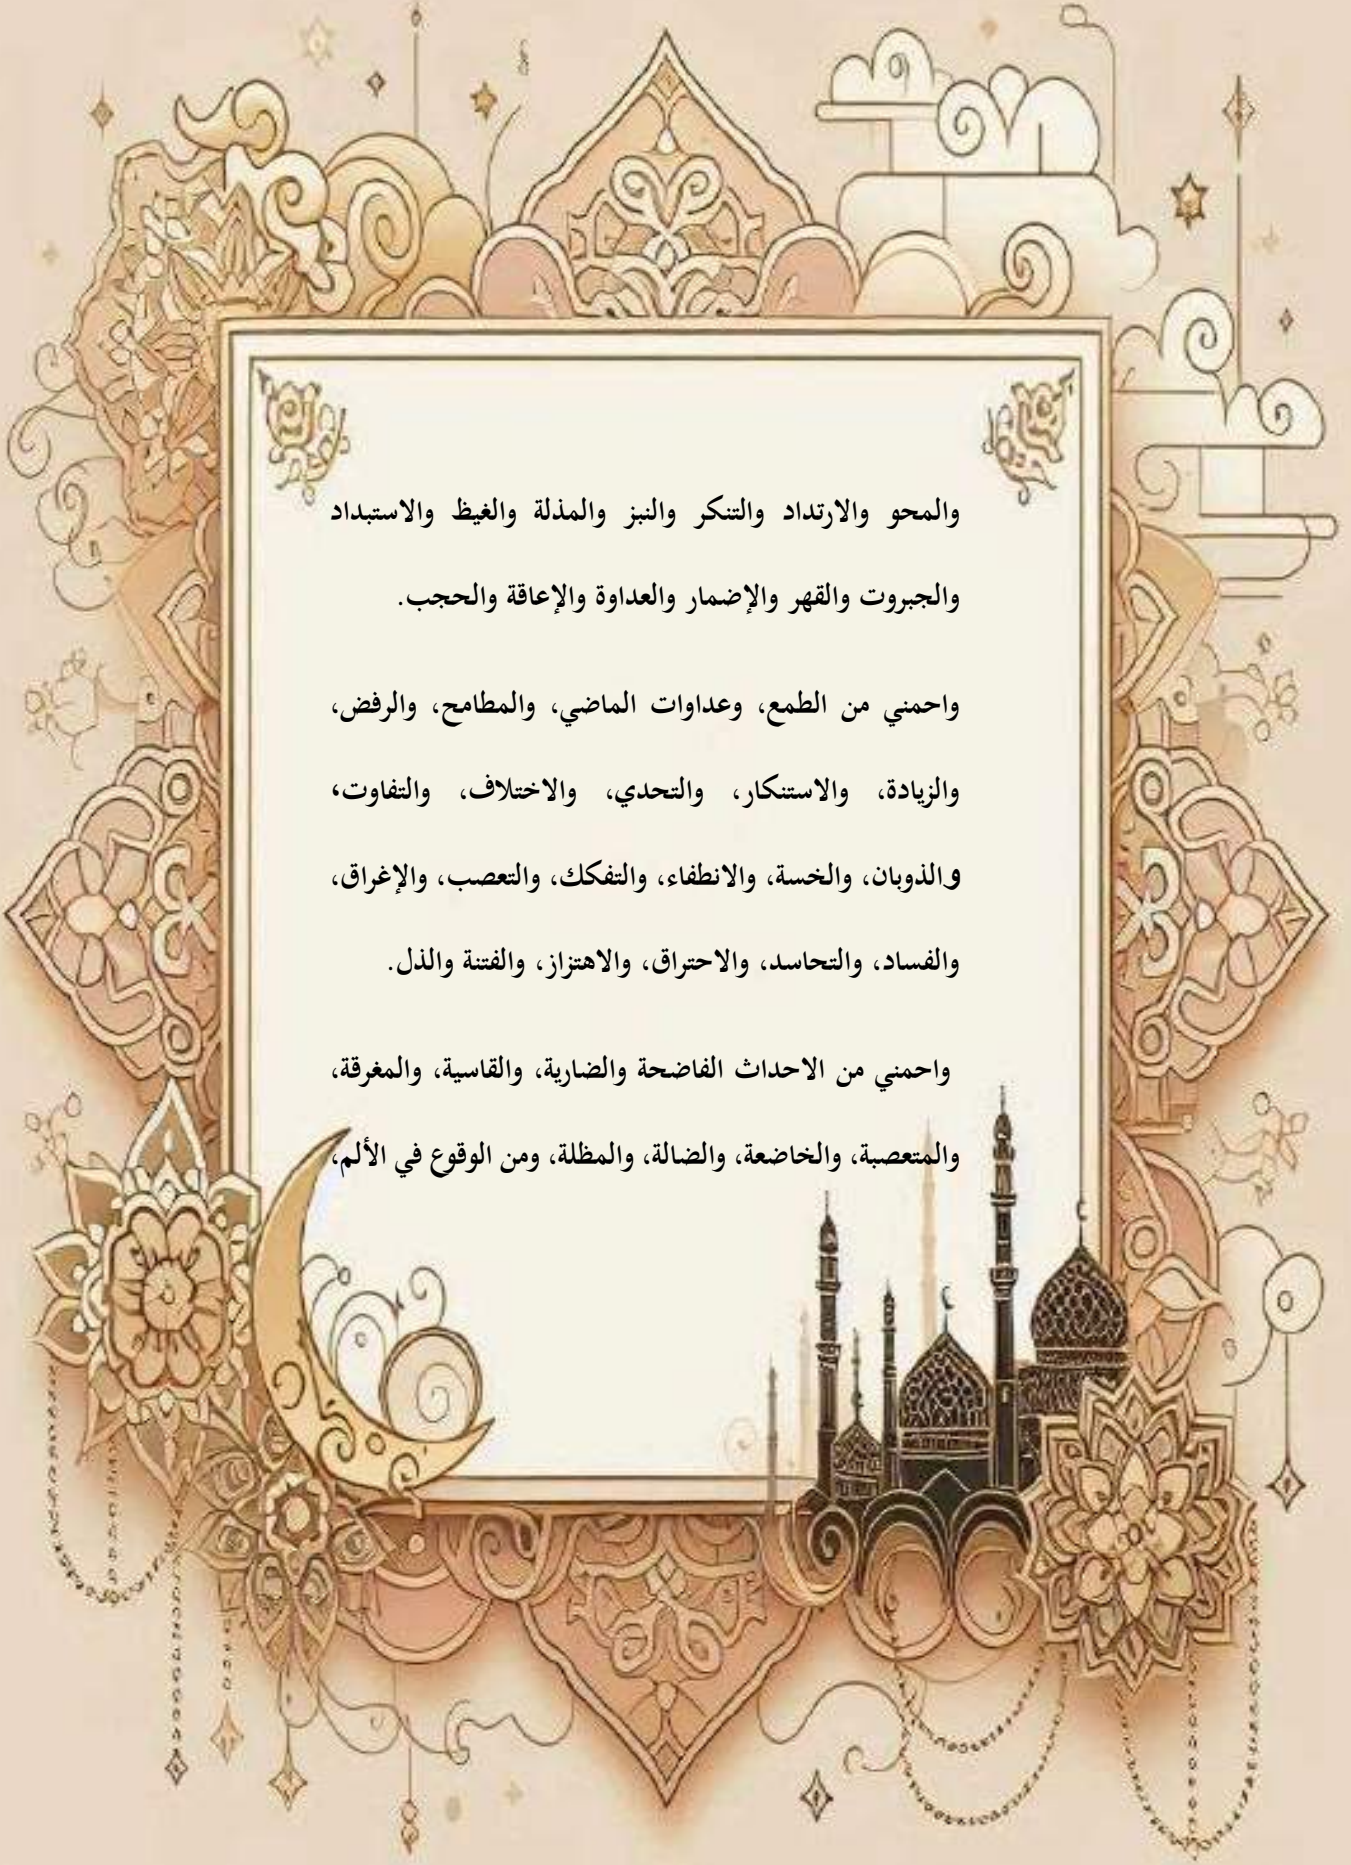 والمحو والارتداد والتنكر والنبز والمذلة والغيظ والاستبداد
والجبروت والقهر والإضمار والعداوة والإعاقة والحجب.
واحمني من الطمع، وعداوات الماضي، والمطامح، والرفض،
والزيادة، والاستنكار، والتحدي، والاختلاف، والتفاوت،
والذوبان، والخسة، والانطفاء، والتفكك، والتعصب، والإغراق،
والفساد، والتحاسد، والاحتراق، والاهتزاز، والفتنة والذل.
واحمني من الاحداث الفاضحة والضارية، والقاسية، والمغرقة،
والمتعصبة، والخاضعة، والضالة، والمظلة، ومن الوقوع في الألم،